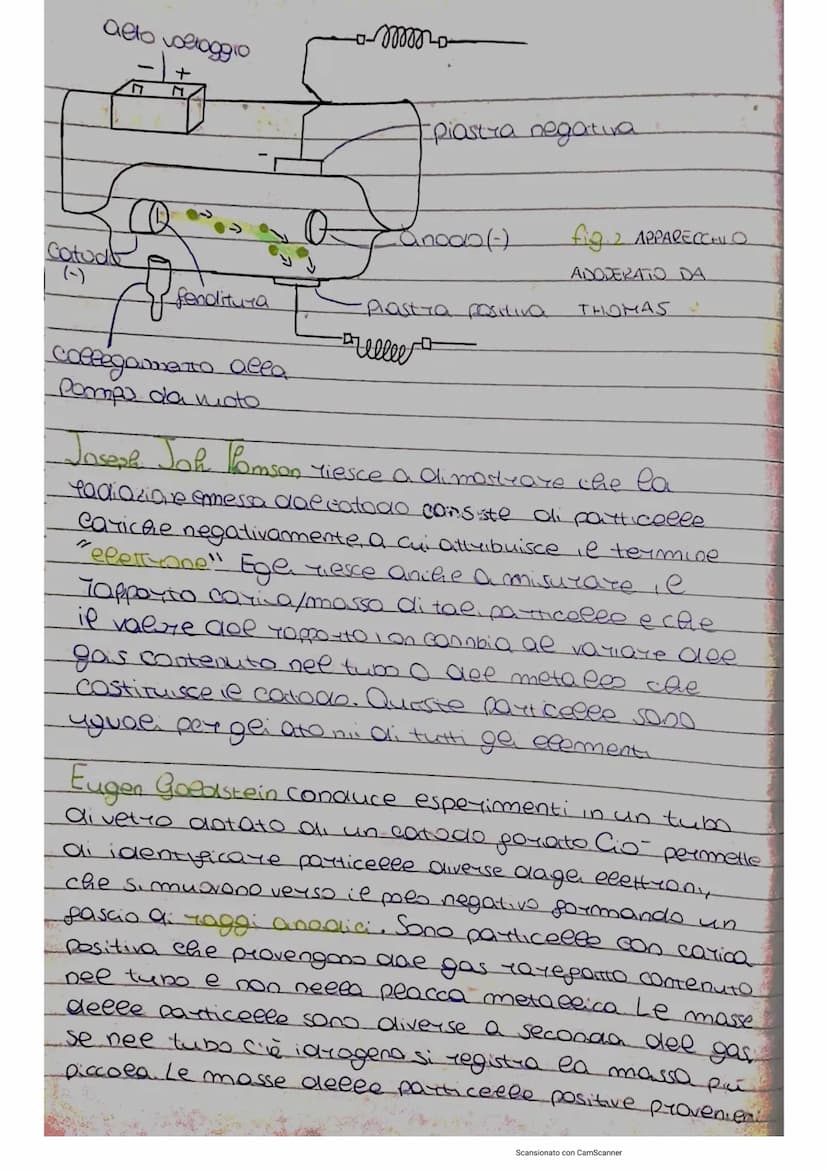 alto voltaggio
- +
piastra negativa
-
anodo(-)
fig.2 APPARECCHIO
ADOPERATO DA
THOMAS
Catodo
(-)
fenditura
piastra positiva
collegamento alla
Pompa da vuoto
Joseph Joh Thomson riesce a dimostrare che la
radiazione emessa dal catodo consiste di particelle
cariche negativamente, a cui attribuisce il termine
"elettrone" Egli riesce anche a misurare il
rapporto carica/massa di tali particelle e che
il valore del rapporto non cambia al variare del
gas contenuto nel tubo o del metallo che
costituisce il catodo. Queste particelle sono
uguali per gli atomi di tutti gli elementi
Eugen Goldstein conduce esperimenti in un tubo
di vetro dotato di un catodo forato Ciò permette
di identificare particelle diverse dagli elettroni,
che si muovono verso il polo negativo formando un
fascio di raggi anodici. Sono particelle con carica
positiva che provengono dal gas rarefatto contenuto
nel tubo e non nella placca metallica Le masse
delle particelle sono diverse a seconda del gas,
se nel tubo c'è idrogeno si registra la massa più
piccola. Le masse delle particelle positive provenien
Scansionato con CamScanner